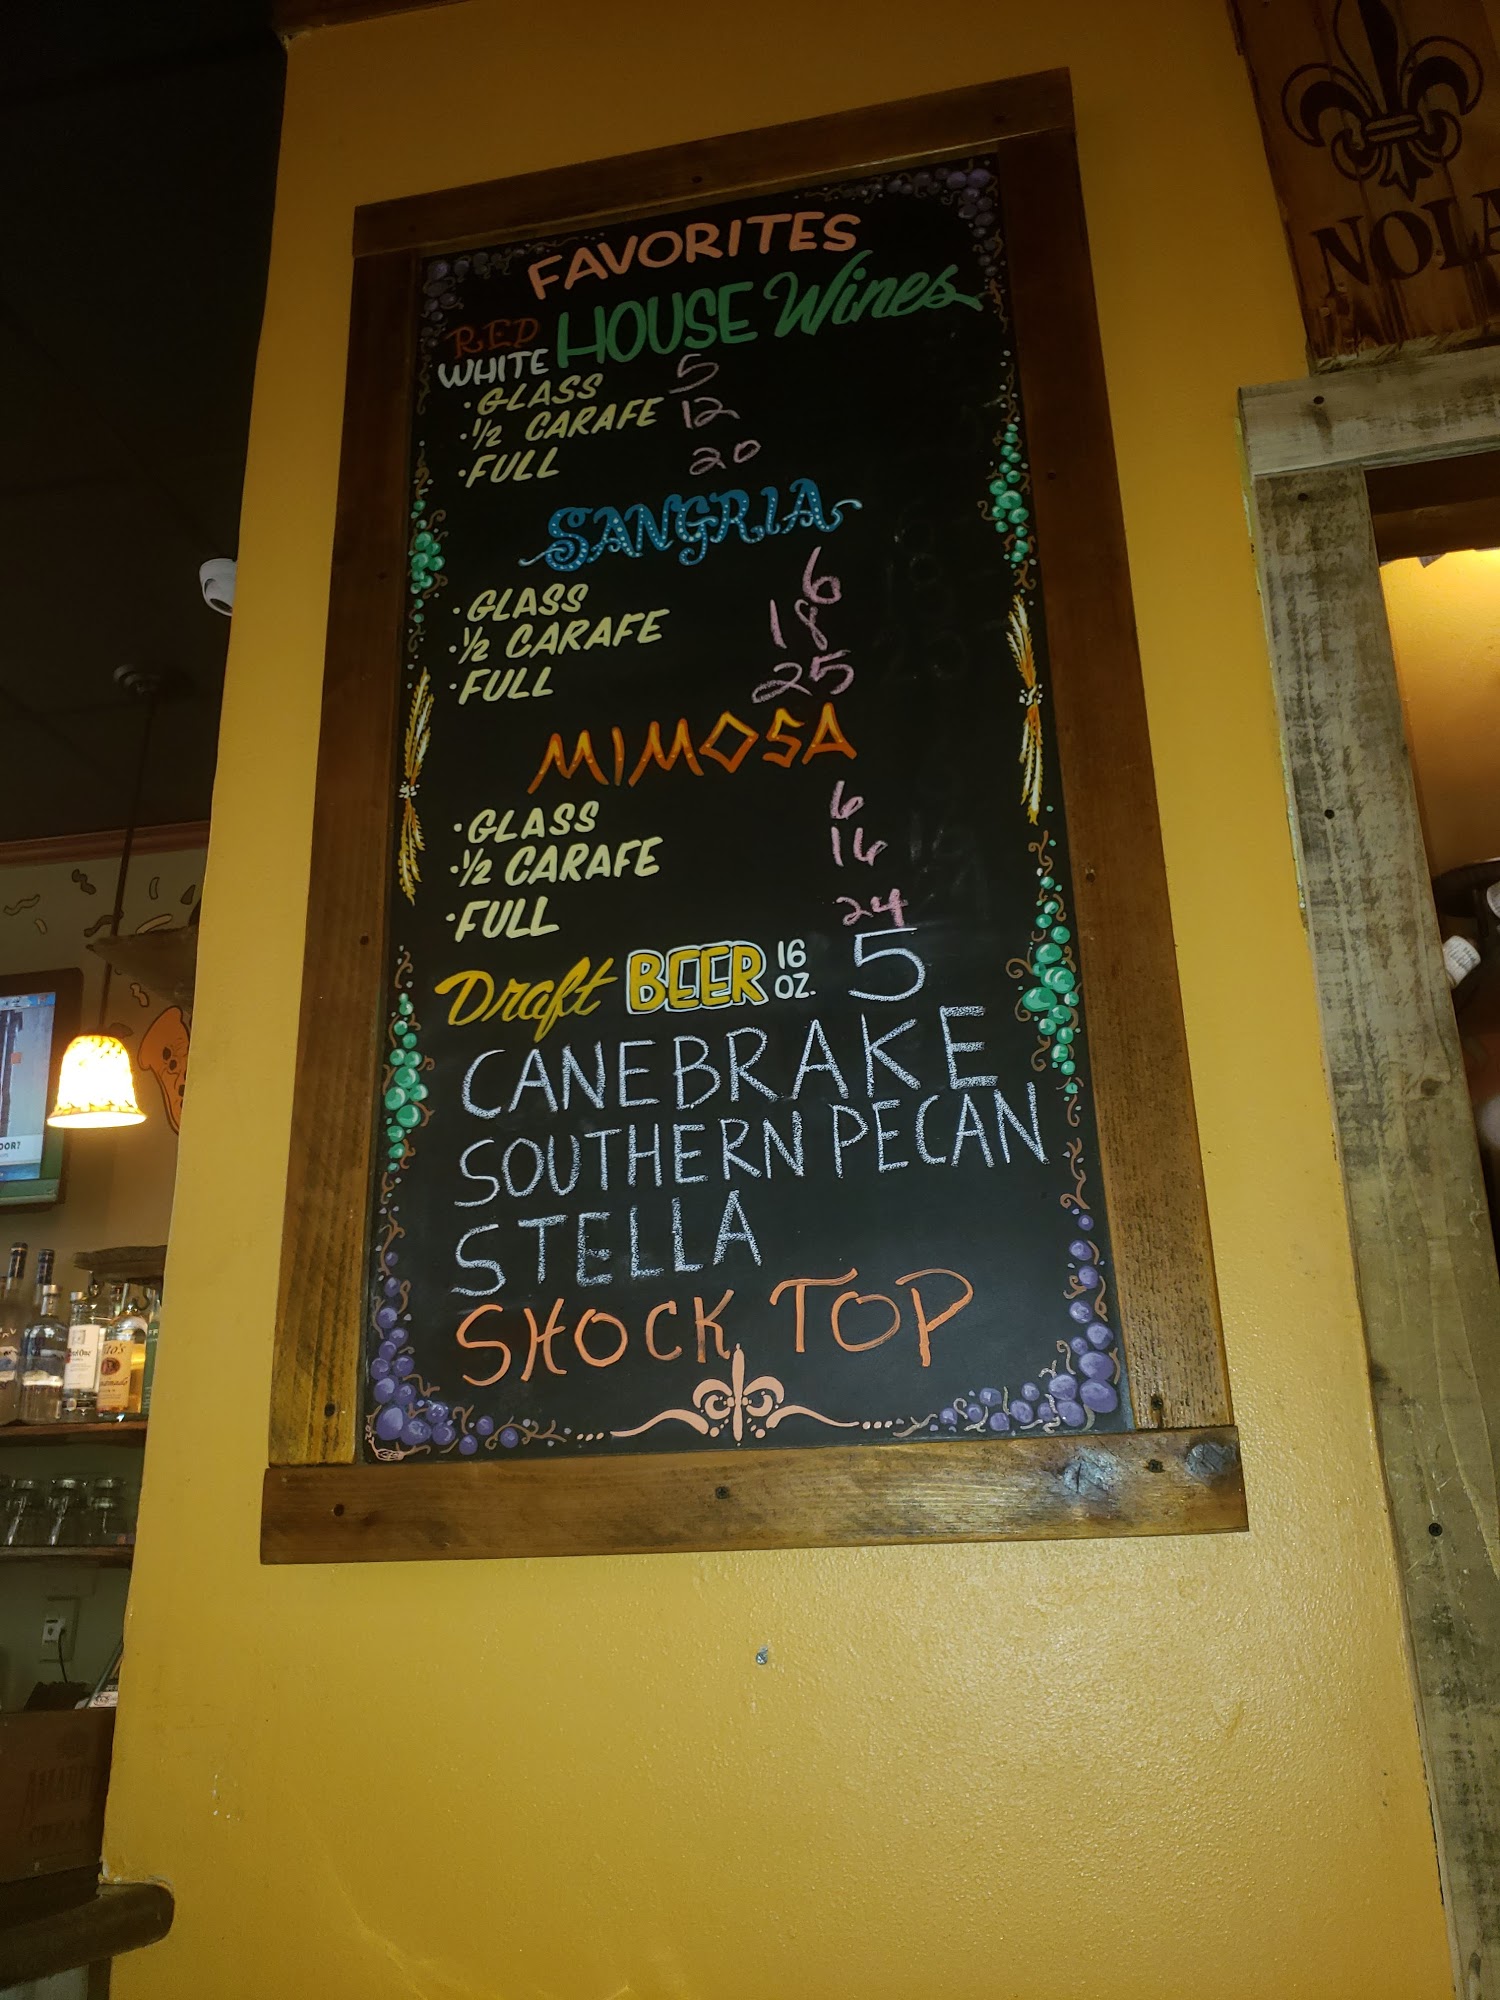 FAVORITES
RED
WHITE HOUSE Wines
• GLASS 5
• 1/2 CARAFE 12
• FULL 20
SANGRIA
• GLASS 6
• 1/2 CARAFE 18
• FULL 25
MIMOSA
• GLASS 6
• 1/2 CARAFE 16
• FULL 24
Draft BEER 16 OZ. 5
CANEBRAKE
SOUTHERN PECAN
STELLA
SHOCK TOP
NOLA
OOR?